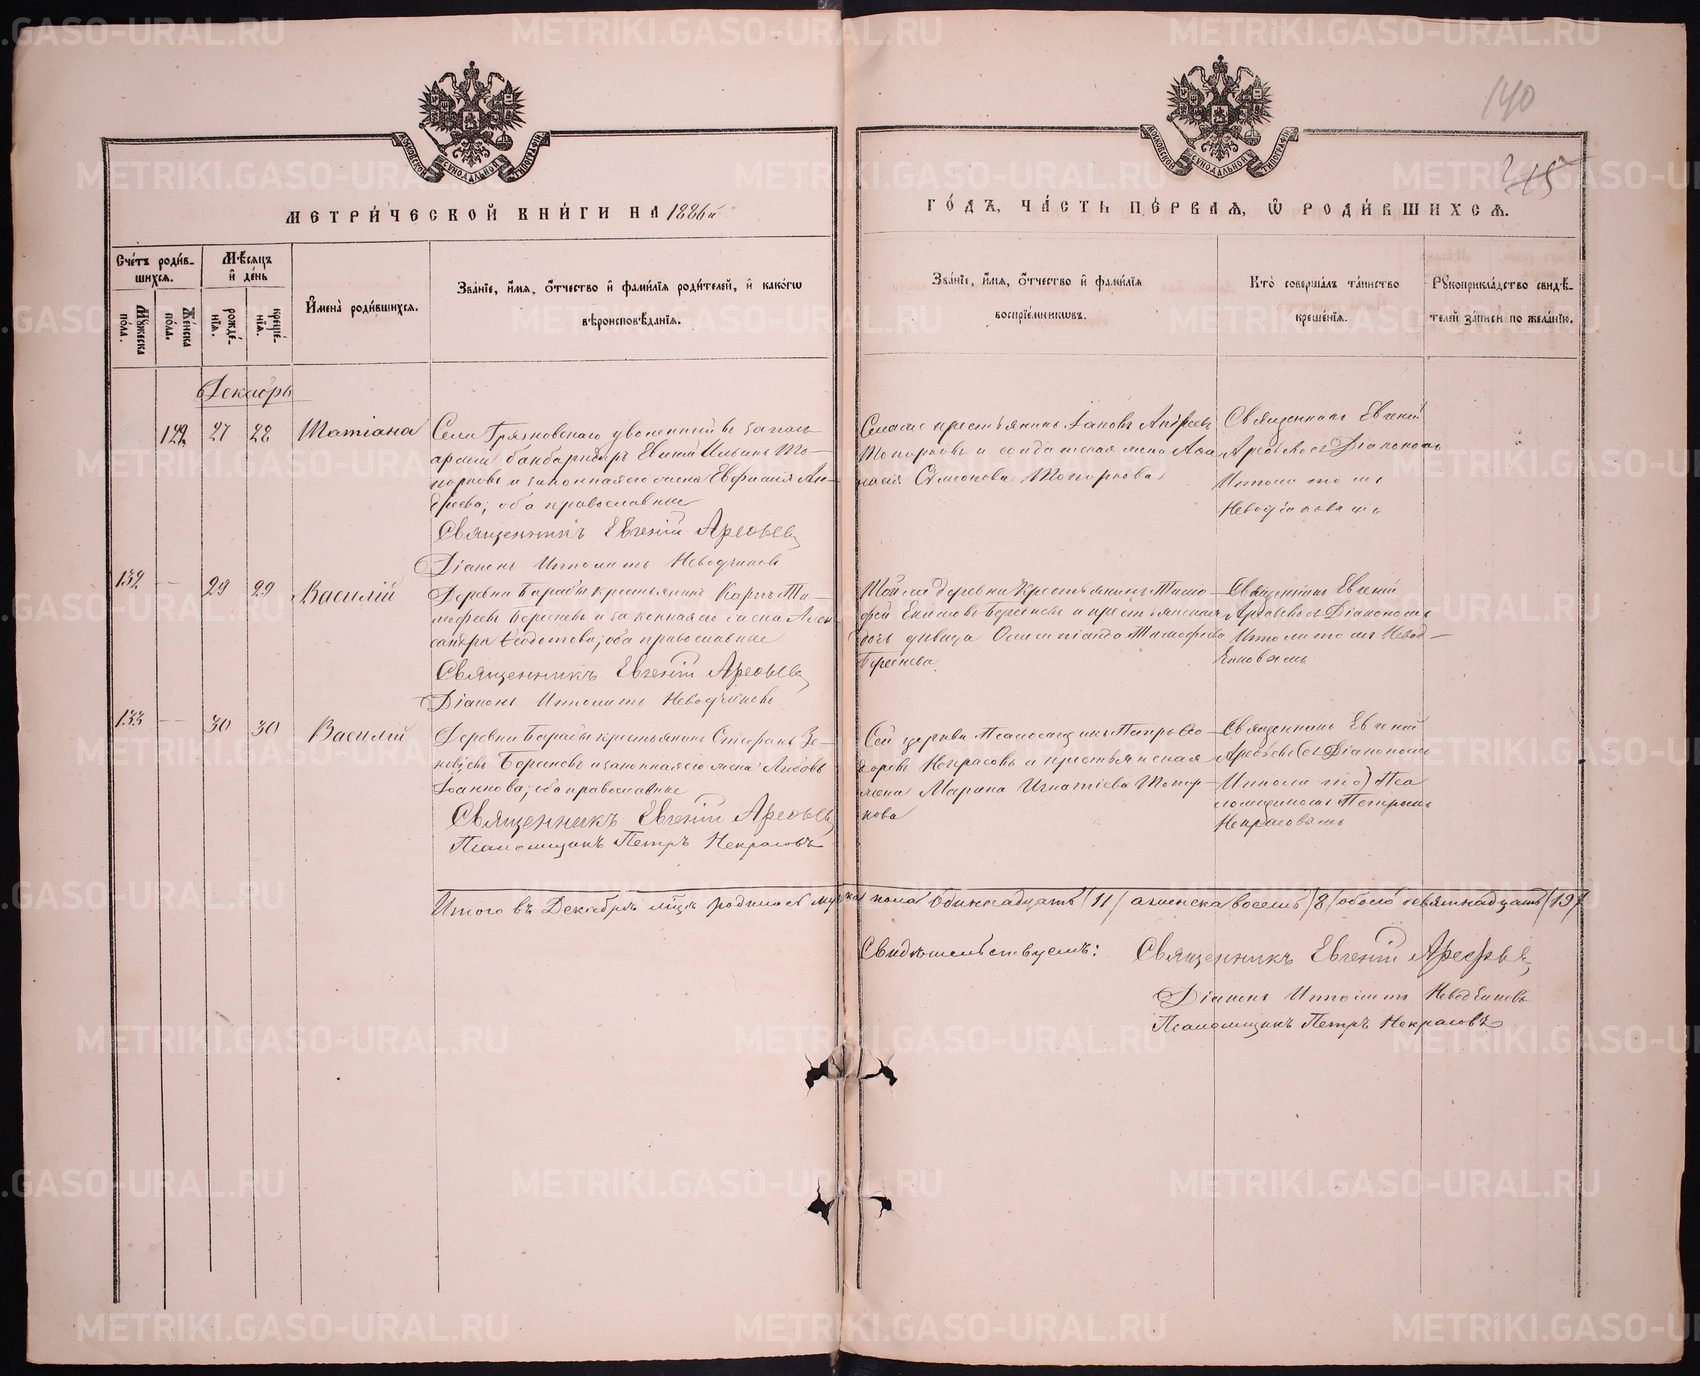 140
215
МОСКОВСКОЙ СѴНОДАЛЬНОЙ ТИПОГРАФІИ
МЕТРИ́ЧЕСКОЙ КНИ́ГИ НА 1886й
ГО́ДЪ, ЧА́СТЬ ПЕ́РВАЯ, Ѽ РОДИ́ВШИХСѦ.
Сче́тъ роди́в-
шихсѧ.
Мꙋжеска по́ла.
Же́нска по́ла.
Мѣ́сяцъ и҆ де́нь
рожде́-
нїѧ.
креще́-
нїѧ.
И҆мена̀ роди́вшихсѧ.
Зва́нїе, и҆́мѧ, ѻ҆́тчество и҆ фами́лїѧ роди́телей, и҆ како́гѡ
вѣроисповѣ́данїѧ.
Зва́нїе, и҆́мѧ, ѻ҆́тчество и҆ фами́лїѧ
воспрїе́мникѡвъ.
Кто̀ соверша́лъ та́инство
креще́нїѧ.
Рꙋкоприкла́дство свидѣ́-
телей за́писи по жела́нїю.
Декабрь
122 27 28 Татіана
Села Грязновскаго уволенный въ запасъ
арміи бомбардиръ Евгеній Ильинъ То-
порковъ и законная его жена Евфимія Ан-
дреева, оба православные
Священникъ Евгеній Арефьевъ
Діаконъ Ипполитъ Неводчиковъ
Села крестьянинъ Іаковъ Андреевъ
Топорковъ и солдатская жена
Симеонова Топоркова
Священникъ Евгеній
Арефьевъ съ Діакономъ
Ипполитомъ
Неводчиковымъ
132 — 29 29 Василій
Деревни крестьянинъ Карпъ Ти-
мофеевъ Берсеневъ и законная его жена Алек-
сандра Федотова, оба православные
Священникъ Евгеній Арефьевъ
Діаконъ Ипполитъ Неводчиковъ
Той же деревни крестьянинъ Тимо-
фей Берсеневъ и крестьянская
дочь девица Олимпіада Тимофеева
Берсенева
Священникъ Евгеній
Арефьевъ съ Діакономъ
Ипполитомъ Невод-
чиковымъ
133 — 30 30 Василій
Деревни крестьянинъ Стефанъ
Берсеневъ и законная его жена Любовь
Іоаннова, оба православные
Священникъ Евгеній Арефьевъ
Псаломщикъ Петръ Некрасовъ
Сей церкви Псаломщикъ Петръ Ѳео-
доровъ Некрасовъ и крестьянская
жена Марина Игнатіева Топор-
кова
Священникъ Евгеній
Арефьевъ (съ Діакономъ
Ипполито) Пса
ломщикомъ Петромъ
Некрасовымъ
Итого въ Декабрѣ мцѣ родилось мужска пола одиннадцать /11/ а женска восемь /8/ обоего девятнадцать /19/
Свидѣтельствуемъ: Священникъ Евгеній Арефьевъ
Діаконъ Ипполитъ Неводчиковъ
Псаломщикъ Петръ Некрасовъ
METRIKI.GASO-URAL.RU